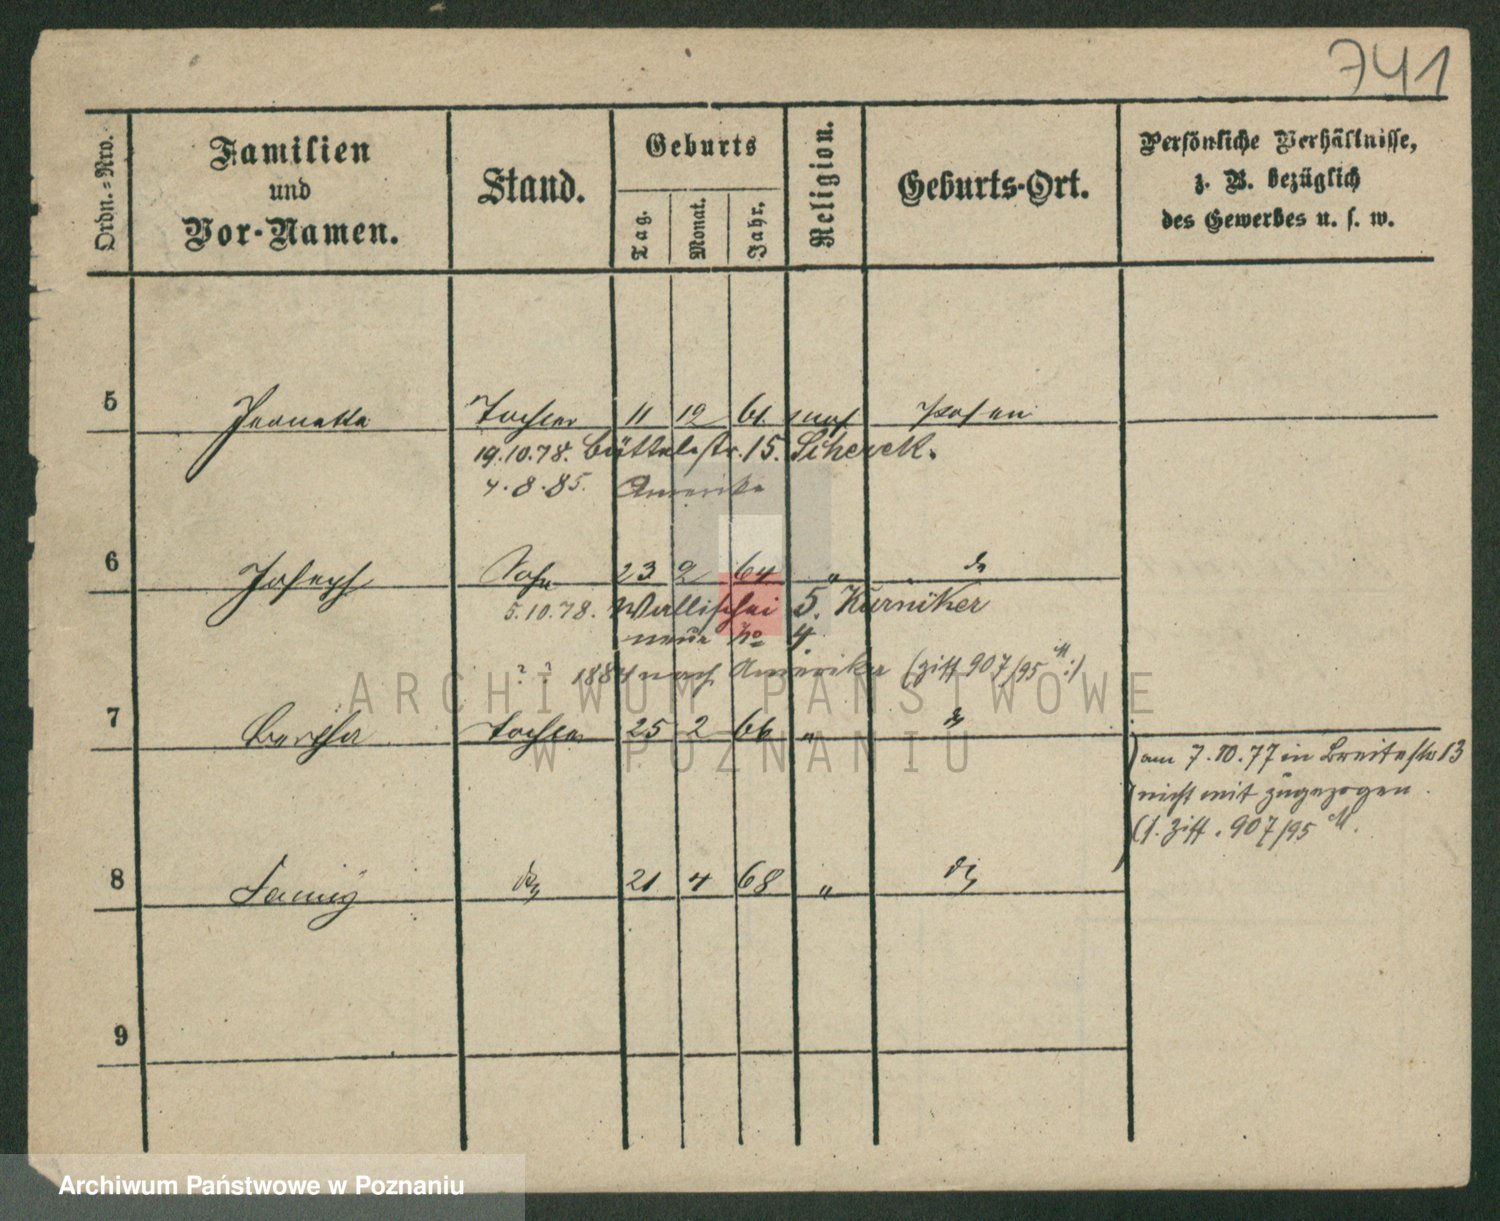 741
Ordn.=Nro.
Familien
und
Vor-Namen.
Stand.
Geburts
Tag.
Monat.
Jahr.
Religion.
Geburts-Ort.
Persönliche Verhältnisse,
z. B. bezüglich
des Gewerbes u. s. w.
5 Jeanette Tochter 11 12 61. mos Posen
19.10.78. Büttelstr. 15. Scherek.
4.8.85. Amerika
6 Joseph Sohn 23 2 64 " do
5.10.78. Wallischei 5. Kurniker
neue No 4.
? ? 1884 nach Amerika (Ziff 907/95 M:)
7 Bertha Tochter 25 2 66 " do
am 7.10.77 in Breitestr 13
nicht mit zugezogen.
(s. Ziff. 907/95 M.
8 do 21 4 68 " do
9
ARCHIWUM PAŃSTWOWE
W POZNANIU
Archiwum Państwowe w Poznaniu